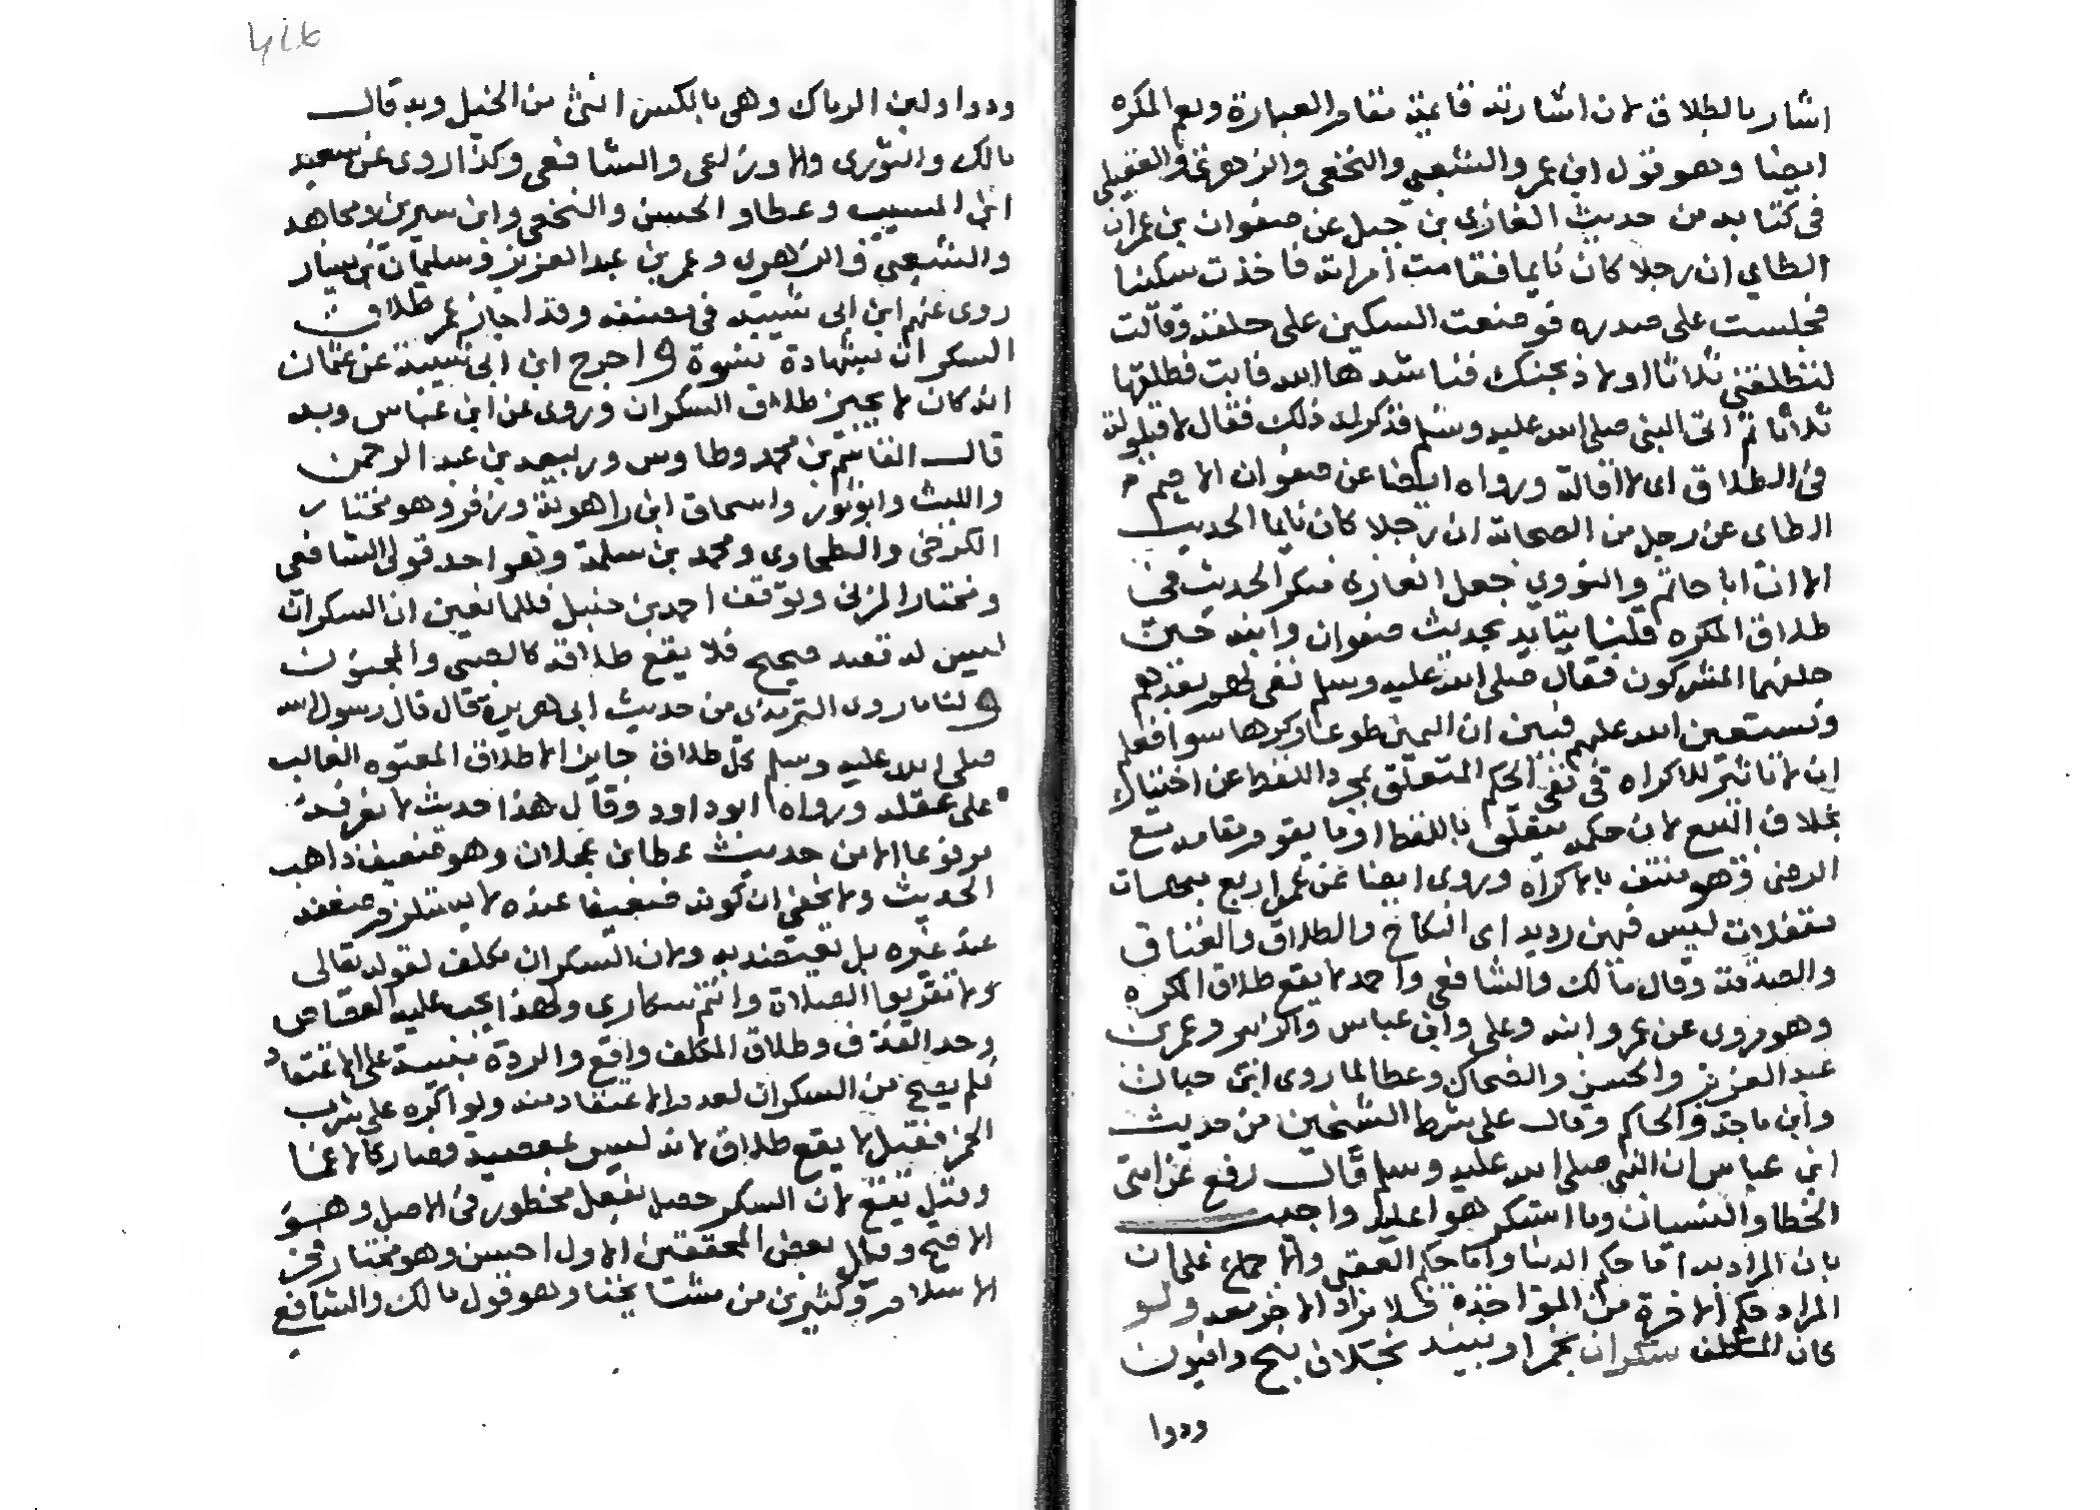 اشار بالطلاق لان اشارته قائمة مقام العبارة ومع المكره
ايضا وهو قول ابن عمر والشعبي والنخعي والزهري والعقيلي
في كتابه من حديث الغازي بن جبل عن صفوان بن عمران
الطاي ان رجلا كان نايما فقامت امراته فاخذت سكينا
فجلست على صدره فوضعت السكين على حلقه وقالت
لتطلقني ثلاثا اولاذبحنك فناشدها الله فابت فطلقها
ثلاثا ثم اتى النبي صلى الله عليه وسلم فذكر له ذلك فقال لا قيلولة
في الطلاق اى لا اقالة ورواه ايضا عن صفوان الاصم
الطاى عن رجل من الصحابة ان رجلا كان نايما الحديث
الا ان ابا حاتم والنووي جعل الغازى منكر الحديث في
طلاق المكره قلنا يتايد بحديث صفوان وابيه حين
حلفهما المشركون فقال صلى الله عليه وسلم نفي لهم بعهدهم
ونستعين الله عليهم فبين ان اليمين طوعا وكرها سوا فعلم
ان لا تاثير للاكراه في نفي الحكم المتعلق بمجرد اللفظ عن اختيار
بخلاف البيع لان حكمه يتعلق باللفظ او ما يقوم مقامه مع
الرضى وهو منتف بالاكراه وروى ايضا عن عمر اربع مبهمات
مقفلات ليس فيهن رديد اى النكاح والطلاق والعتاق
والصدقة وقال مالك والشافعي واحمد لا يقع طلاق المكره
وهو مروى عن عمر وابنه وعلى وابن عباس والزبير وعمر بن
عبد العزيز والحسن والضحاك وعطا لما روى ابن حبان
وابن ماجة والحاكم وقال على شرط الشيخين من حديث
ابن عباس ان النبي صلى الله عليه وسلم قال رفع عن امتى
الخطا والنسيان وما استكرهوا عليه واجيب
بان المراد به اما حكم الدنيا واما حكم العقبى والاجماع على ان
المراد حكم الاخرة من المؤاخذة فلا يراد الاخر معه ولو
كان المطلق سكران بخمر او نبيذ بخلاف بنج وافيون
ودوا
ودوا ولبن الرماك وهي بالكسر انثى من الخيل وبه قال
مالك والثورى والاوزاعى والشافعى وكذا روى عن سعيد
ابن المسيب وعطا والحسن والنخعي وابن سيرين ومجاهد
والشعبي والزهرى وعمر بن عبد العزيز وسليمان بن يسار
روى عنهم ابن ابى شيبة في مصنفه وقد اجاز عمر طلاق
السكران بشهادة نسوة واخرج ابن ابى شيبة عن عثمان
انه كان لا يجيز طلاق السكران وروى عن ابن عباس وبه
قال القاسم بن محمد وطاوس وربيعة بن عبد الرحمن
والليث وابو ثور واسحاق ابن راهوية وزفر وهو مختار
الكرخي والطحاوى ومحمد بن سلمة وهو احد قولى الشافعي
ومختار المزنى وتوقف احمد بن حنبل فللمانعين ان السكران
ليس له قصد صحيح فلا يقع طلاقه كالصبى والمجنون
ولنا ما روى الترمذى من حديث ابى هريرة قال قال رسول الله
صلى الله عليه وسلم كل طلاق جايز الا طلاق المعتوه الغالب
على عقله ورواه ابو داود وقال هذا حديث لا نعرفه
مرفوعا الا من حديث عطا بن عجلان وهو ضعيف ذاهب
الحديث ولا يخفى ان كونه ضعيفا عنده لا يستلزم ضعفه
عند غيره بل يعتضد به ولان السكران مكلف لقوله تعالى
ولا تقربوا الصلاة وانتم سكارى ولهذا يجب عليه القصاص
وحد القذف وطلاق المكلف واقع والردة مبنية على الاعتقاد
فلم يصح من السكران لعدم الاعتقاد منه ولو اكره على شرب
الخمر فقيل لا يقع طلاق لانه ليس بمعصية فصار كالاغما
وقيل يقع لان السكر حصل بفعل محظور في الاصل وهو
الاصح وقال بعض المحققين الاول احسن وهو مختار فخر
الاسلام وكثيرين من مشايخنا وهو قول مالك والشافع